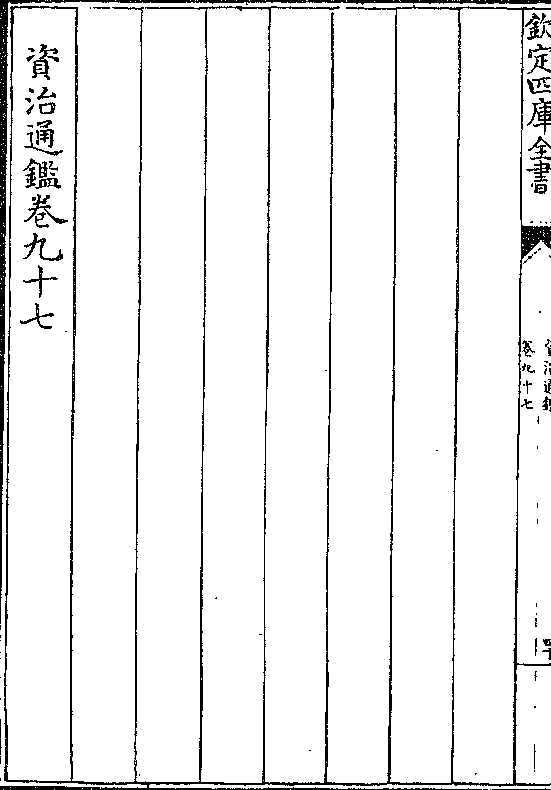 欽定四庫全書
資治通鑑
卷九十七
資治通鑑卷九十七